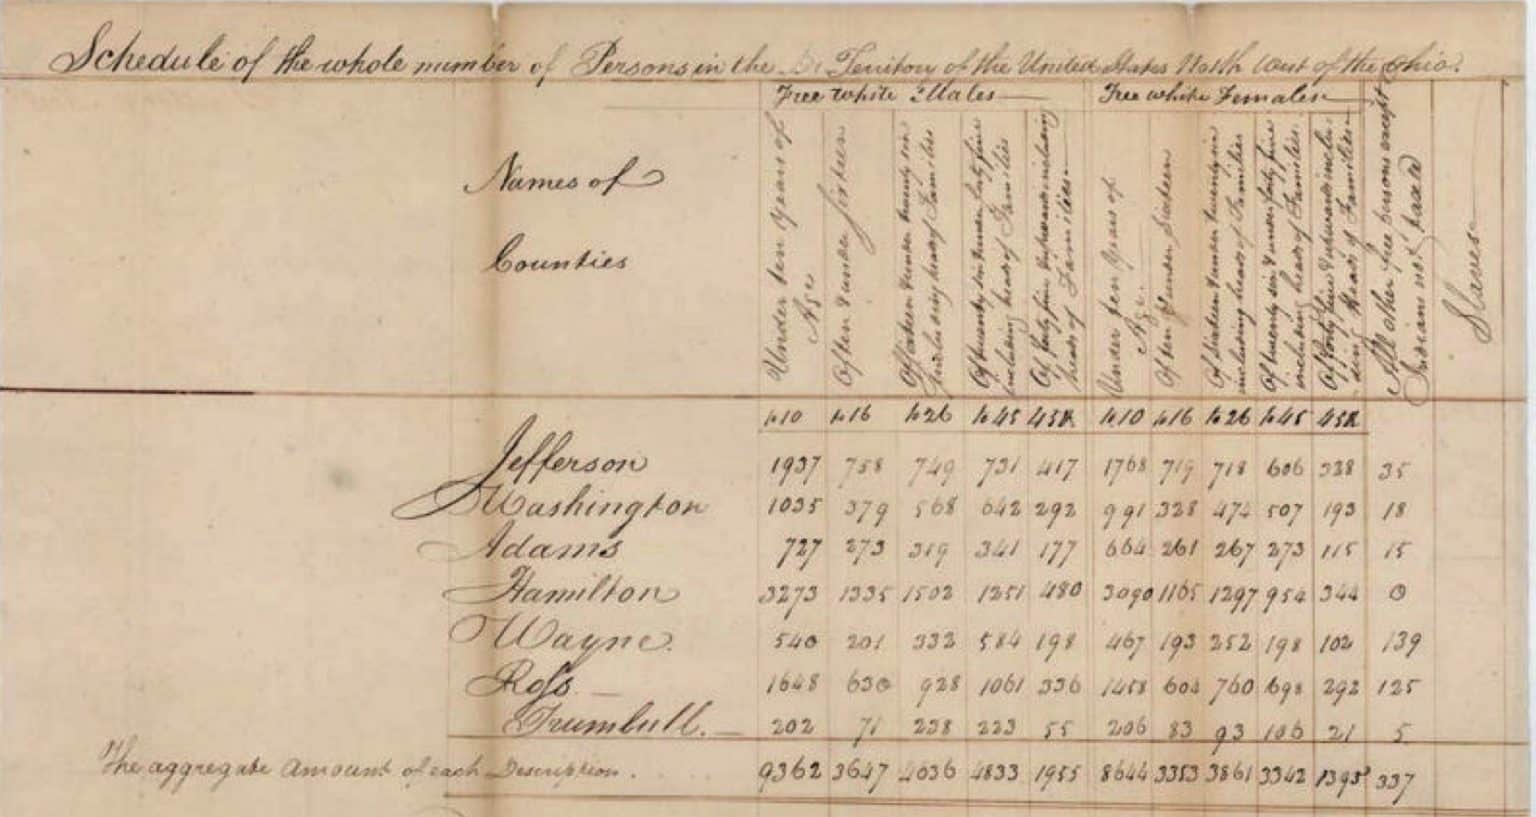 Schedule of the whole number of Persons in the Territory of the United States North West of the Ohio.
Free white Males Free white Females
Names of
Counties
Under ten Years of Age
Of ten & under sixteen
Of sixteen & under twenty six including heads of Families
Of twenty six & under forty five including heads of Families
Of forty five & upwards including heads of Families
Under ten Years of Age.
Of ten & under Sixteen
Of sixteen & under twenty six including heads of Families
Of twenty six & under forty five including heads of Families
Of forty five & upwards including Heads of Families
All other free persons except Indians not taxed
Slaves
to 10 to 16 to 26 to 45 45 & to 10 to 16 to 26 to 45 45 &
Jefferson 1937 758 749 731 417 1768 719 718 606 328 35
Washington 1035 379 568 642 292 991 328 474 507 193 18
Adams 727 273 319 341 177 664 261 267 273 115 15
Hamilton 3273 1335 1502 1251 480 3090 1165 1297 954 344 0
Wayne. 540 201 332 584 198 467 193 252 198 102 139
Ross 1648 630 928 1061 336 1458 604 760 698 292 125
Trumbull. 202 71 238 223 55 206 83 93 106 21 5
The aggregate Amount of each Description. 9362 3647 4636 4833 1955 8644 3353 3861 3342 1395 337